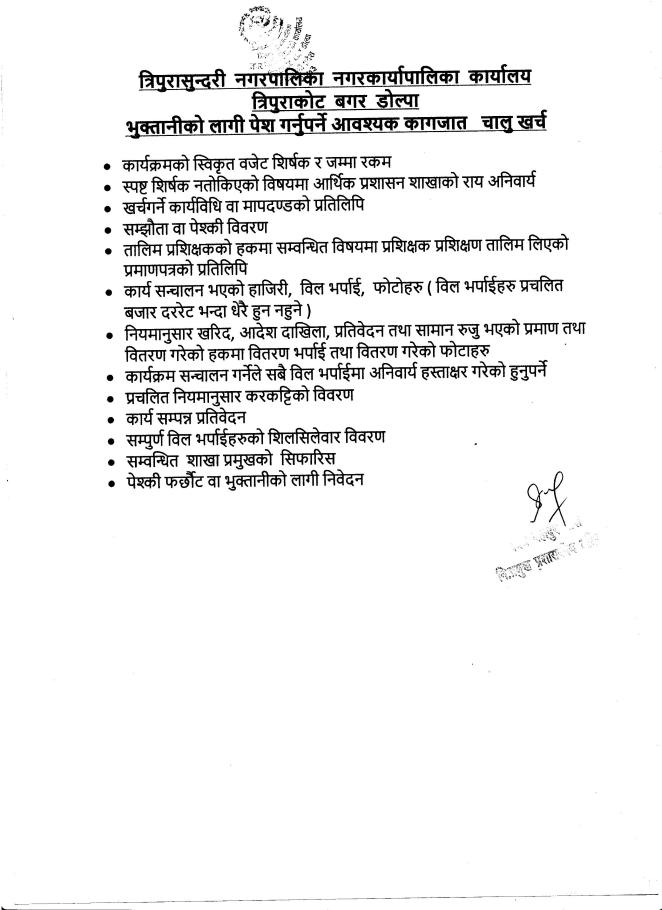 त्रिपुरासुन्दरी नगरपालिका नगरकार्यापालिका कार्यालय
त्रिपुराकोट बगर डोल्पा
भुक्तानीको लागी पेश गर्नुपर्ने आवश्यक कागजात चालु खर्च
• कार्यक्रमको स्विकृत वजेट शिर्षक र जम्मा रकम
• स्पष्ट शिर्षक नतोकिएको विषयमा आर्थिक प्रशासन शाखाको राय अनिवार्य
• खर्चगर्ने कार्यविधि वा मापदण्डको प्रतिलिपि
• सम्झौता वा पेश्की विवरण
• तालिम प्रशिक्षकको हकमा सम्वन्धित विषयमा प्रशिक्षक प्रशिक्षण तालिम लिएको
प्रमाणपत्रको प्रतिलिपि
• कार्य सन्चालन भएको हाजिरी, विल भर्पाई, फोटोहरु ( विल भर्पाईहरु प्रचलित
बजार दररेट भन्दा धेरै हुन नहुने )
• नियमानुसार खरिद, आदेश दाखिला, प्रतिवेदन तथा सामान रुजु भएको प्रमाण तथा
वितरण गरेको हकमा वितरण भर्पाई तथा वितरण गरेको फोटाहरु
• कार्यक्रम सन्चालन गर्नेले सबै विल भर्पाईमा अनिवार्य हस्ताक्षर गरेको हुनुपर्ने
• प्रचलित नियमानुसार करकट्टिको विवरण
• कार्य सम्पन्न प्रतिवेदन
• सम्पुर्ण विल भर्पाईहरुको शिलसिलेवार विवरण
• सम्वन्धित शाखा प्रमुखको सिफारिस
• पेश्की फर्छौट वा भुक्तानीको लागी निवेदन